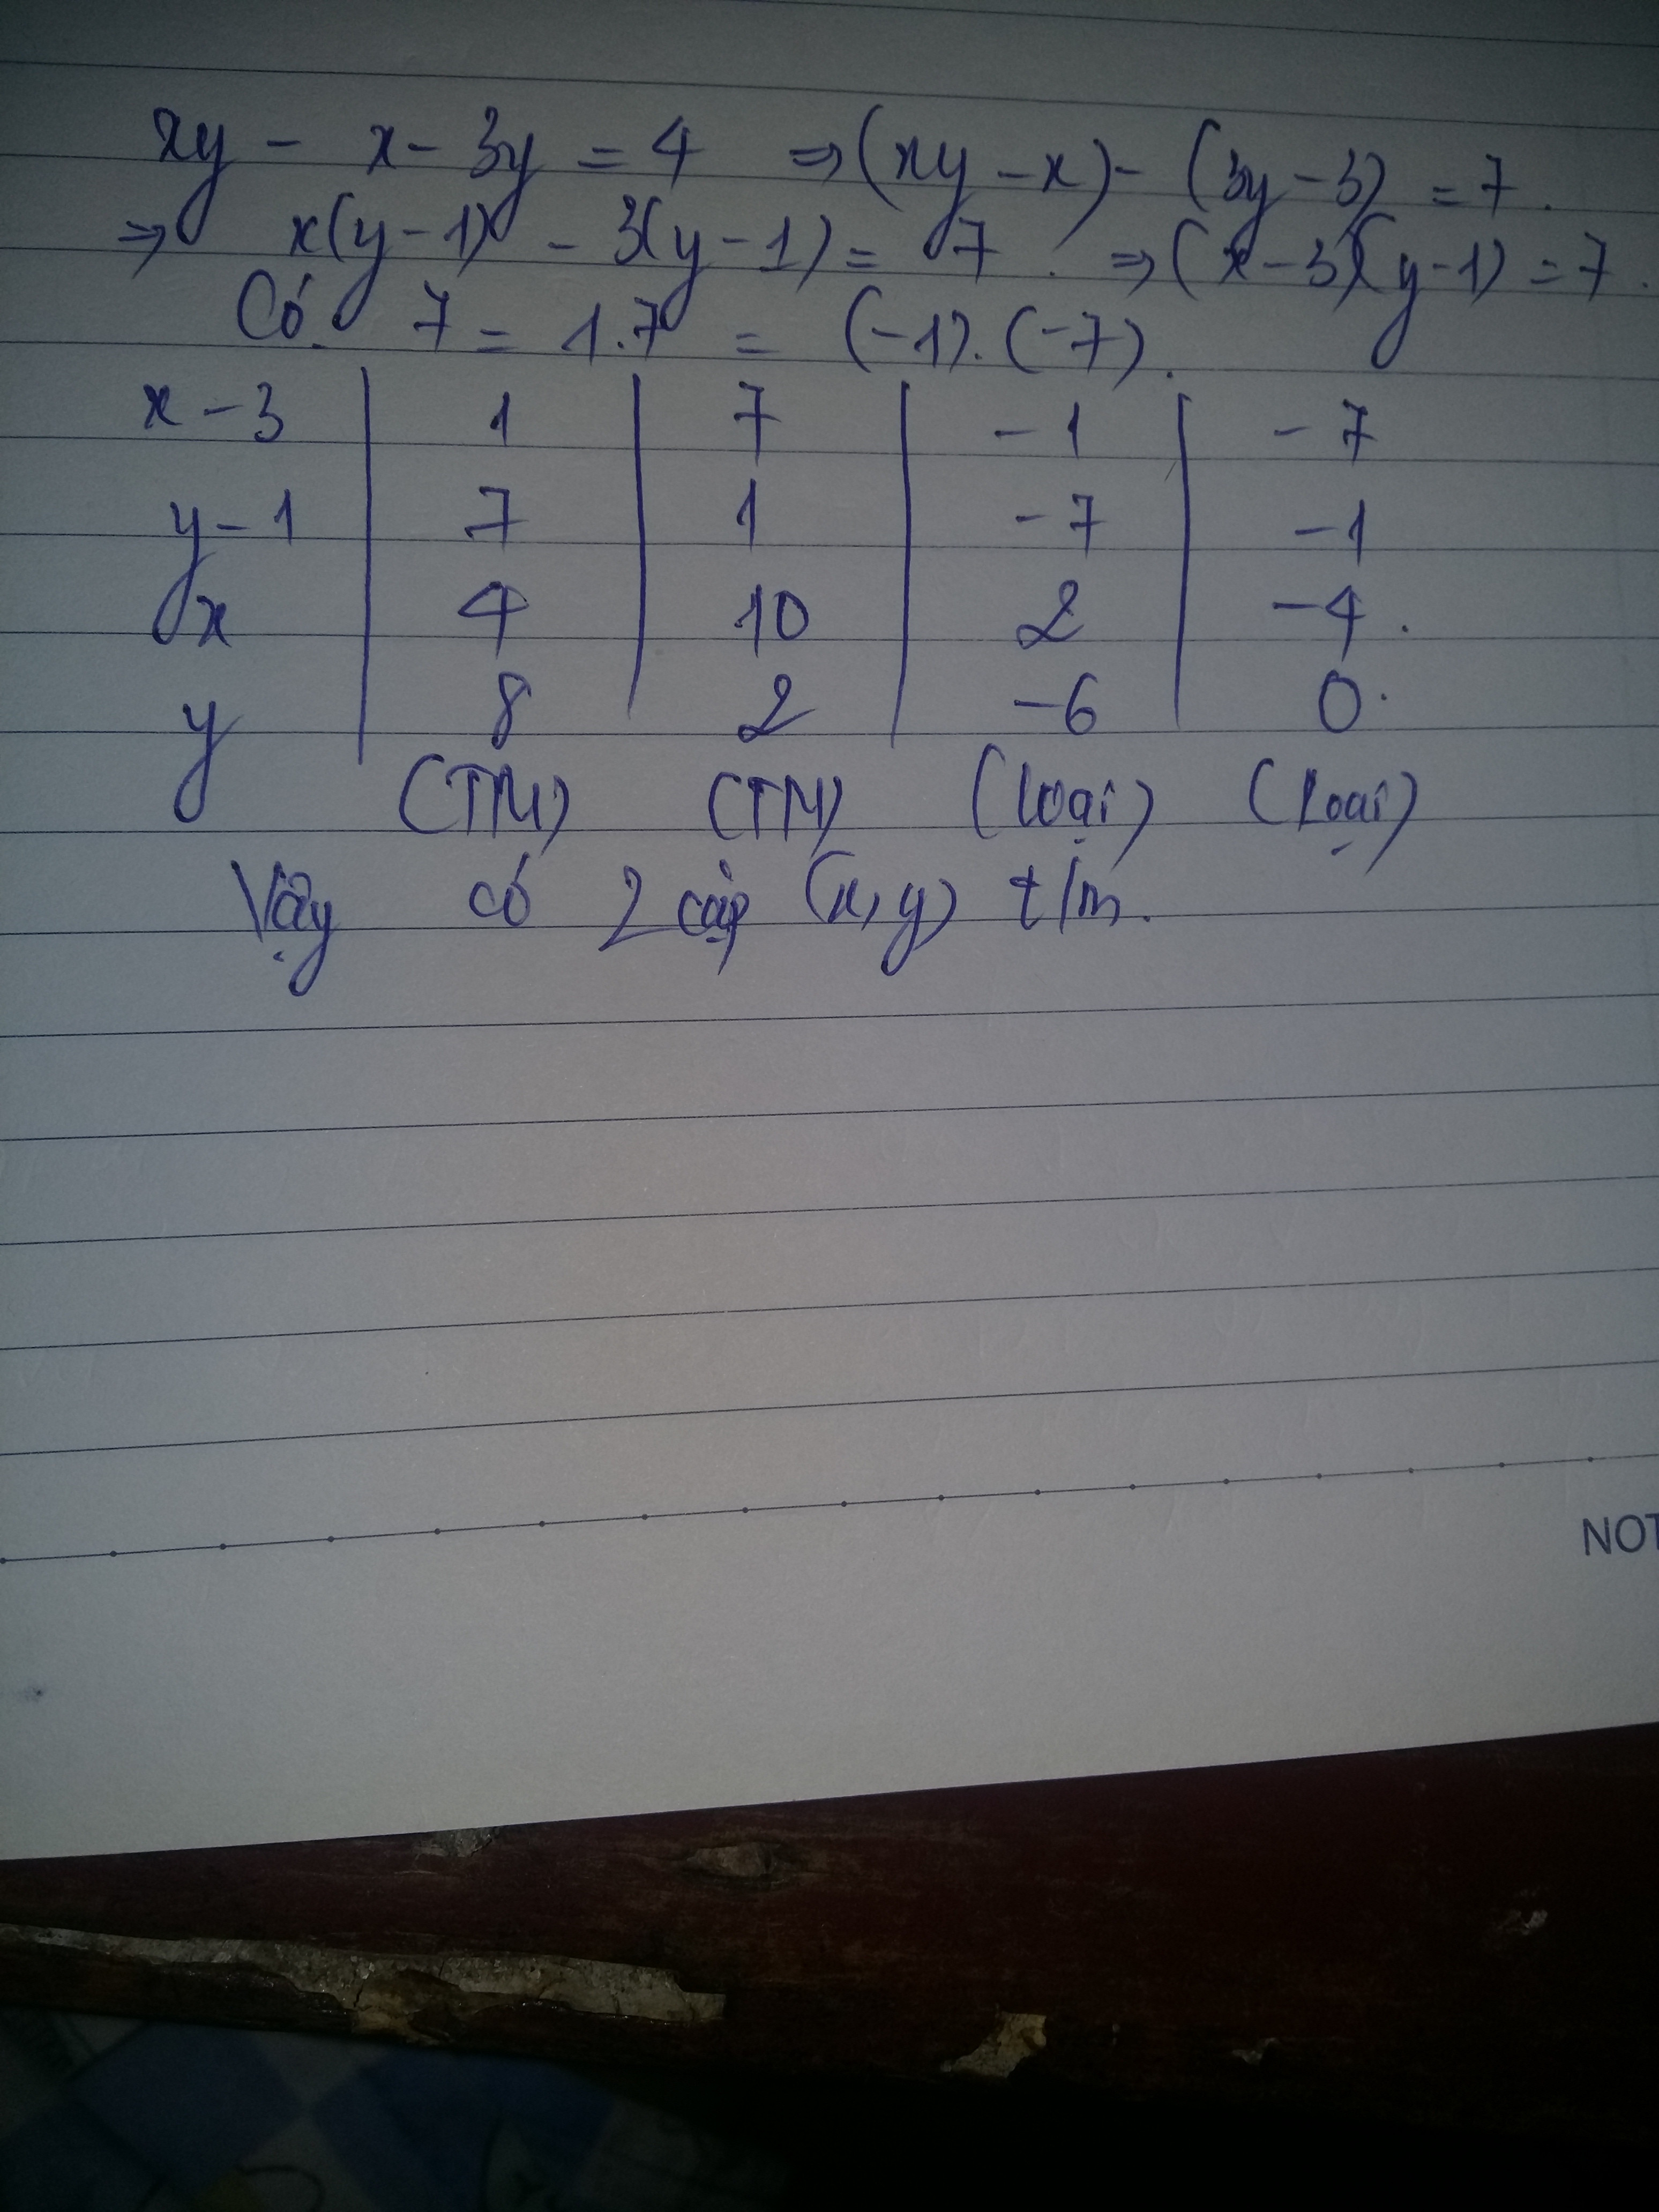 xy - x - 3y = 4 ⇒ (xy - x) - (3y - 3) = 7.
⇒ x(y - 1) - 3(y - 1) = 7. ⇒ (x - 3)(y - 1) = 7.
Có 7 = 1.7 = (-1).(-7).
x - 3 | 1 | 7 | -1 | -7
y - 1 | 7 | 1 | -7 | -1
x | 4 | 10 | 2 | -4.
y | 8 | 2 | -6 | 0.
(TM) (TM) (loại) (Loại)
Vậy có 2 cặp (x, y) t/m.
NOT